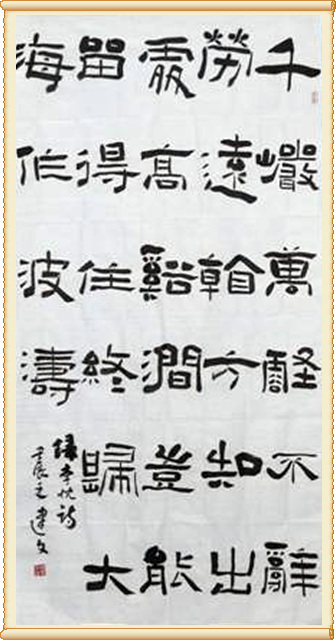 千巖萬壑不辭
勞遠看方知出
處高谿澗豈能
留得住終歸大
海作波濤
錄李忱詩
壬辰建文